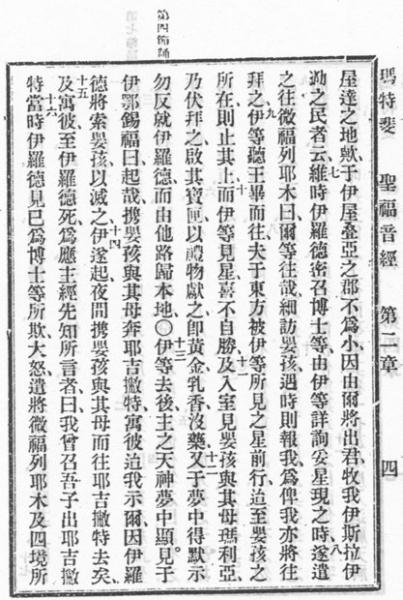 瑪特斐 聖福音經 第二章 四
屋達之地歟于伊屋叠亞之郡不爲小因由爾將出君牧我伊斯拉伊
泐之民者云七維時伊羅德密召博士等由伊等詳詢妄星現之時八遂遣
之往微福列耶木曰爾等往哉細訪嬰孩遇時則報我爲俾我亦將往
拜之九伊等聽王畢而往夫于東方被伊等所見之星前行迨至嬰孩之
所在則止其上而十伊等見星喜不自勝十一及入室見嬰孩與其母瑪利亞
乃伏拜之啟其寶匣以禮物獻之卽黃金乳香沒藥十二又于夢中得默示
勿反就伊羅德而由他路歸本地〇十三伊等去後主之天神夢中顯見于
伊鄂錫福曰起哉携嬰孩與其母奔耶吉撇特寓彼迨我示爾因伊羅
德將索嬰孩以滅之十四伊遂起夜間携嬰孩與其母而往耶吉撇特去矣
十五及寓彼至伊羅德死爲應主經先知所言者曰我曾召吾子出耶吉撇
特十六當時伊羅德見已爲博士等所欺大怒遣將微福列耶木及四境所
第四節誦